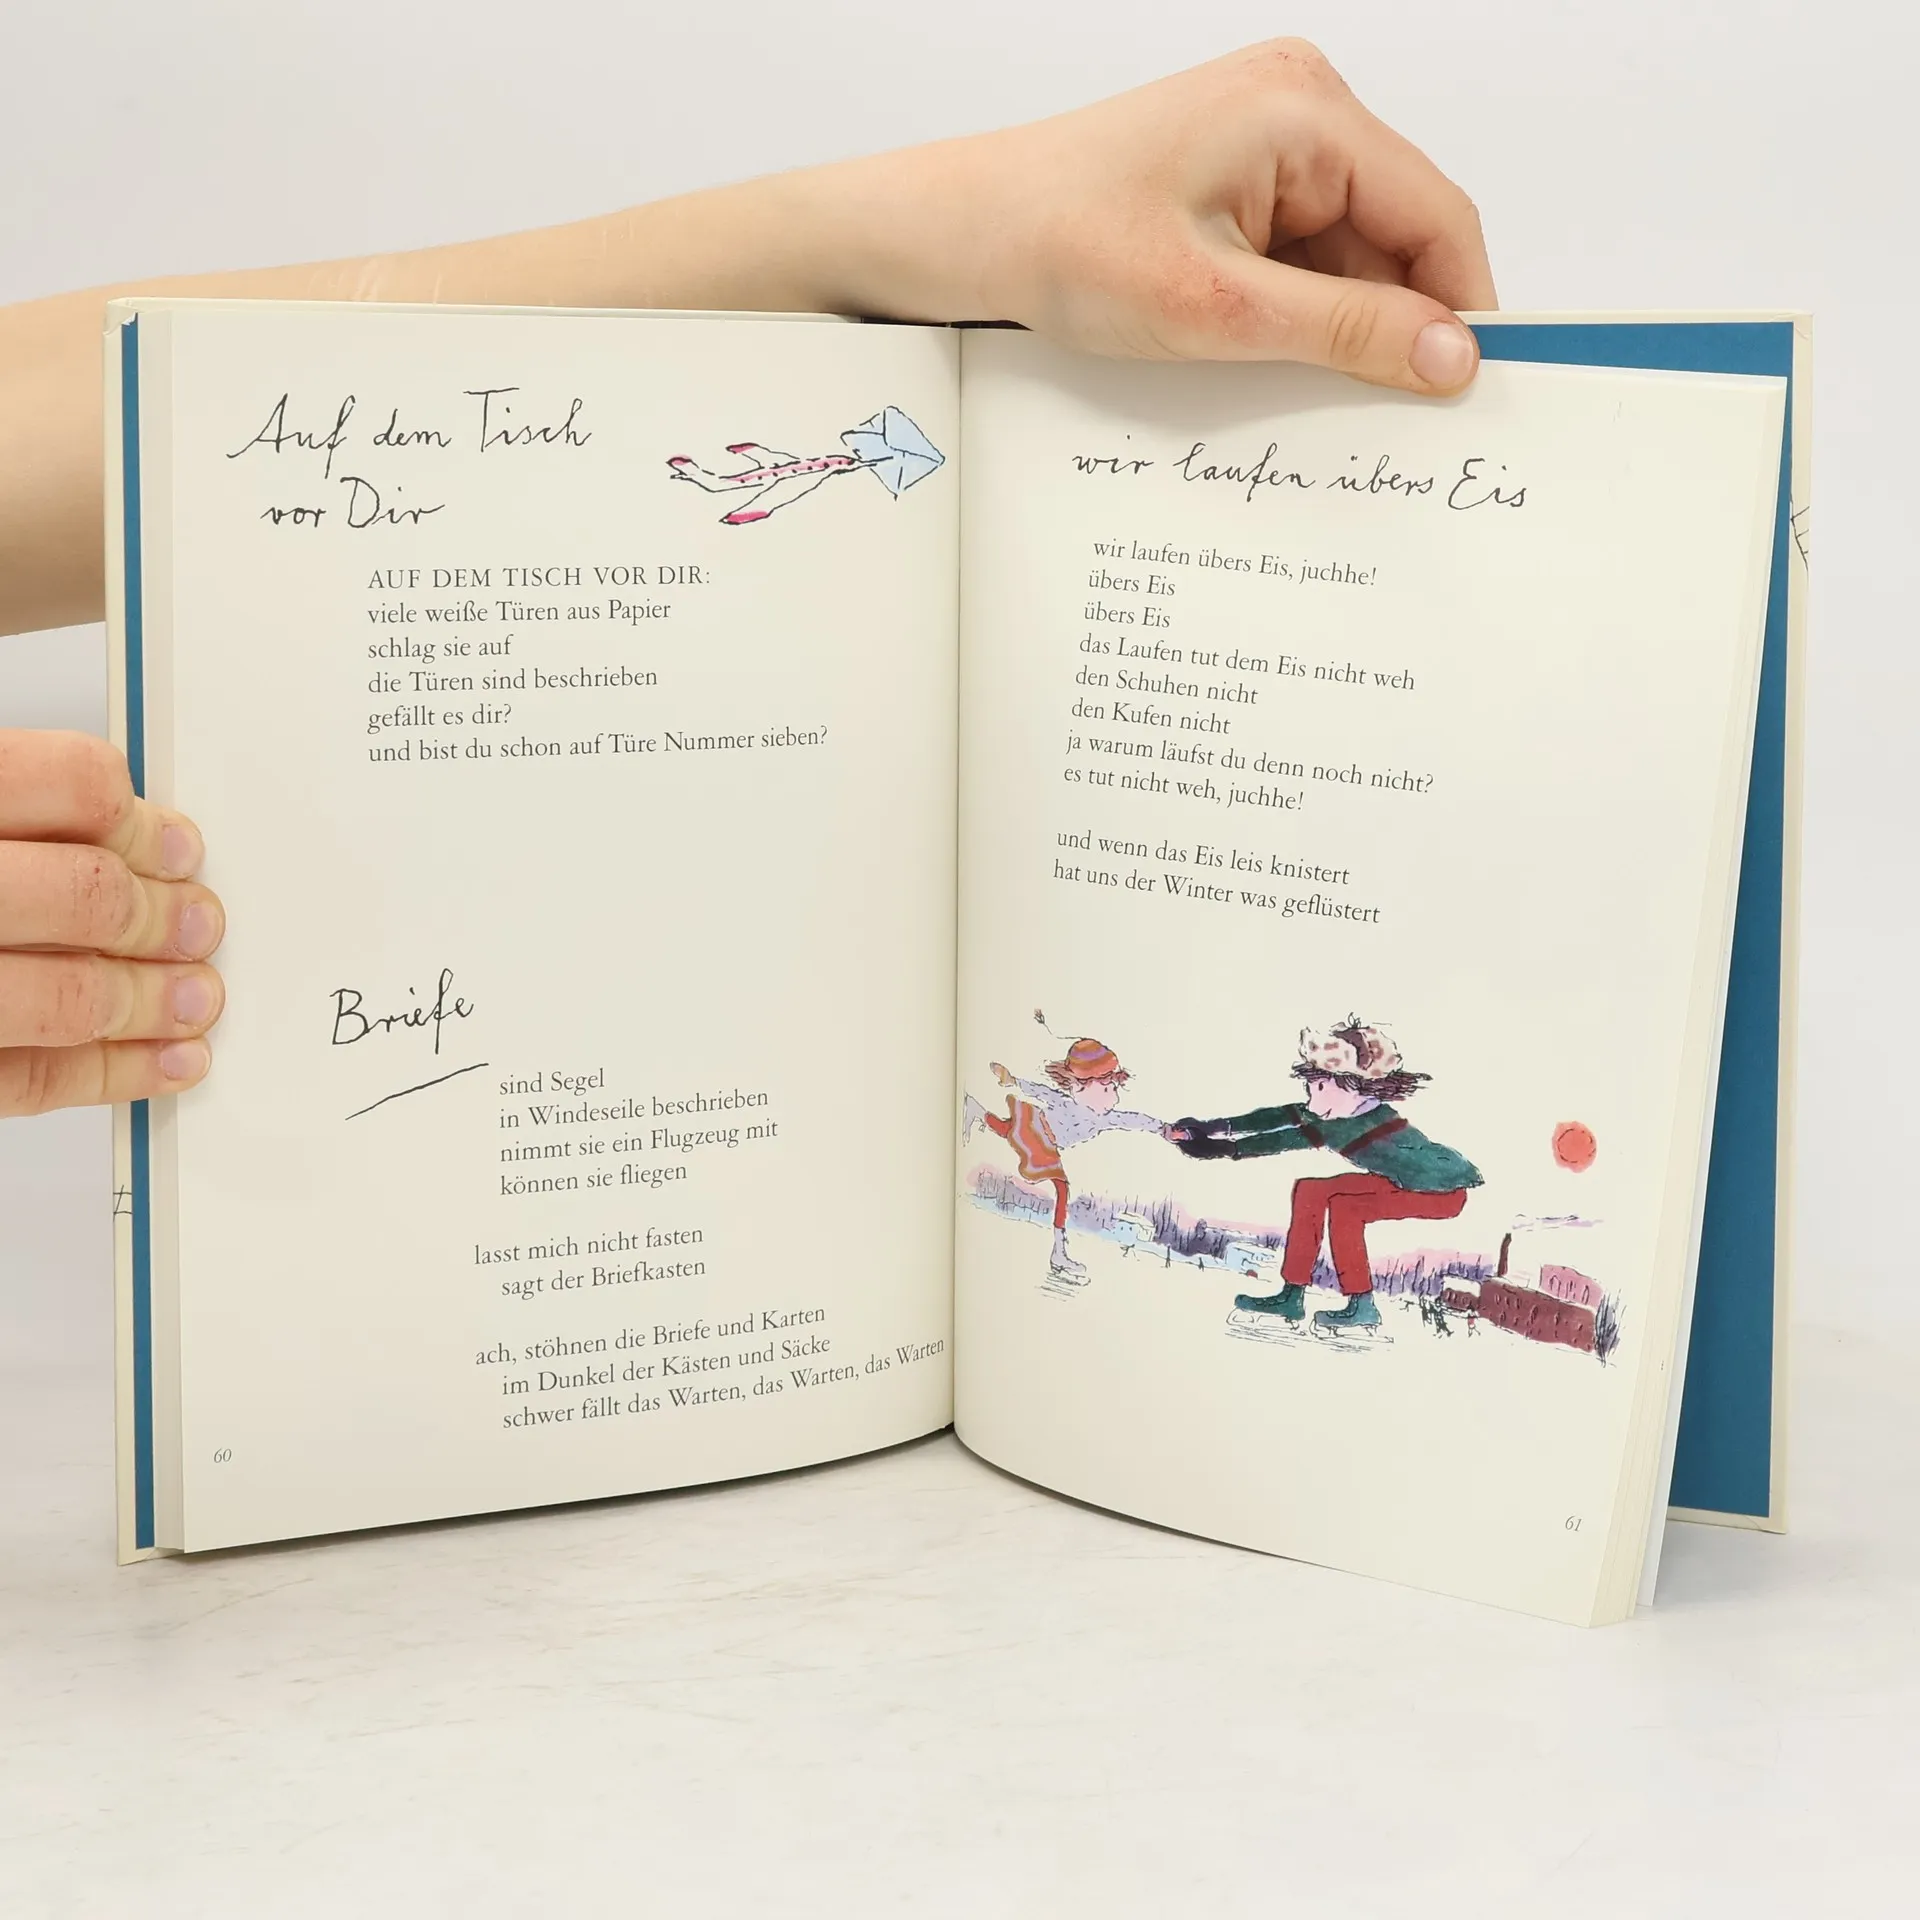 Auf dem Tisch
vor Dir
AUF DEM TISCH VOR DIR:
viele weiße Türen aus Papier
schlag sie auf
die Türen sind beschrieben
gefällt es dir?
und bist du schon auf Türe Nummer sieben?
Briefe
sind Segel
in Windeseile beschrieben
nimmt sie ein Flugzeug mit
können sie fliegen
lasst mich nicht fasten
sagt der Briefkasten
ach, stöhnen die Briefe und Karten
im Dunkel der Kästen und Säcke
schwer fällt das Warten, das Warten, das Warten
60
wir laufen übers Eis
wir laufen übers Eis, juchhe!
übers Eis
übers Eis
das Laufen tut dem Eis nicht weh
den Schuhen nicht
den Kufen nicht
ja warum läufst du denn noch nicht?
es tut nicht weh, juchhe!
und wenn das Eis leis knistert
hat uns der Winter was geflüstert
61